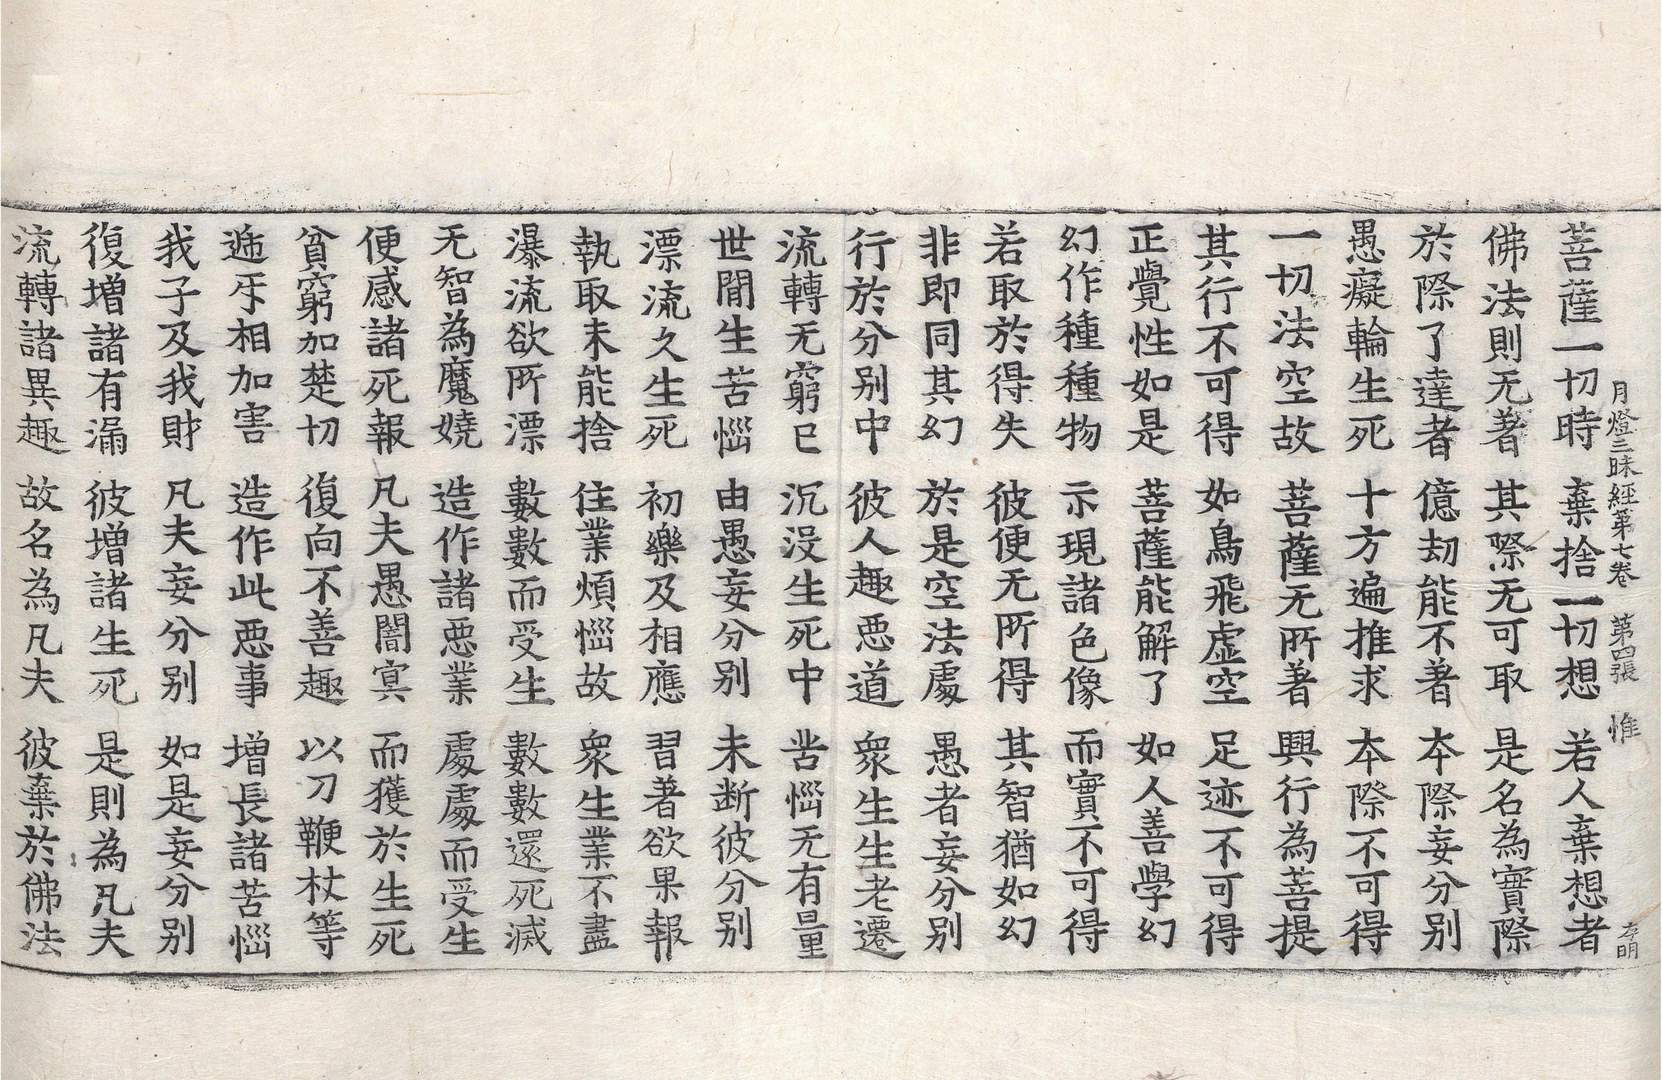 月燈三昧經第七卷 第四張 惟 存明
菩薩一切時 棄捨一切想 若人棄想者
佛法則无著 其際无可取 是名為實際
於際了達者 億劫能不著 本際妄分別
愚癡輪生死 十方遍推求 本際不可得
一切法空故 菩薩无所著 興行為菩提
其行不可得 如鳥飛虛空 足迹不可得
正覺性如是 菩薩能解了 如人善學幻
幻作種種物 示現諸色像 而實不可得
若取於得失 彼便无所得 其智猶如幻
非即同其幻 於是空法處 愚者妄分別
行於分別中 彼人趣惡道 衆生生老遷
流轉无窮已 沉沒生死中 苦惱无有量
世間生苦惱 由愚妄分別 未断彼分別
漂流久生死 初樂及相應 習著欲果報
執取未能捨 住業煩惱故 衆生業不盡
瀑流欲所漂 數數而受生 數數還死滅
无智為魔嬈 造作諸惡業 處處而受生
便感諸死報 凡夫愚闇冥 而獲於生死
貧窮加楚切 復向不善趣 以刀鞭杖等
逓牙相加害 造作此惡事 增長諸苦惱
我子及我財 凡夫妄分別 如是妄分別
復增諸有漏 彼增諸生死 是則為凡夫
流轉諸異趣 故名為凡夫 彼棄於佛法